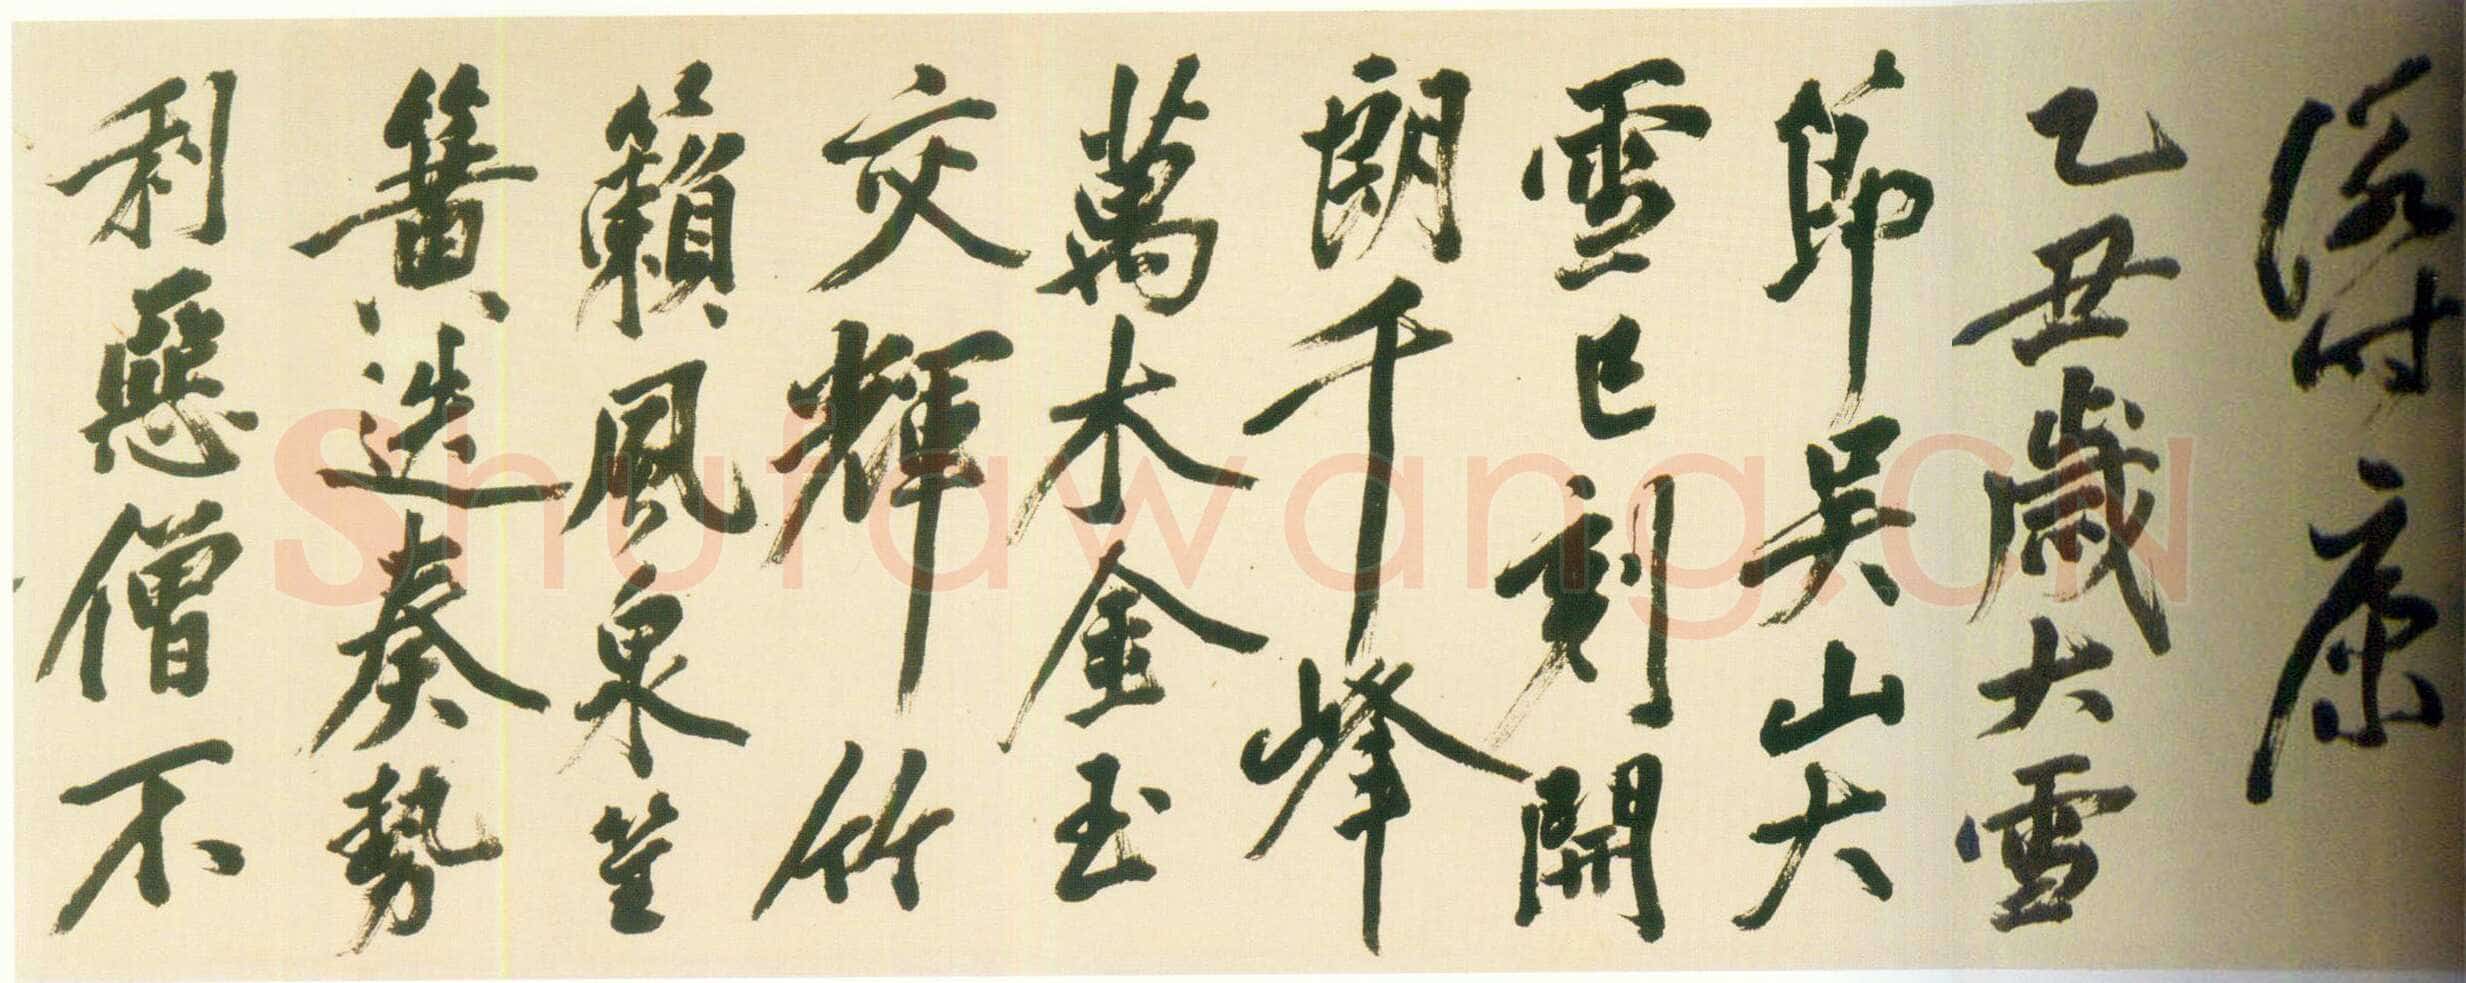 康
乙丑歲大雪
節吳山大
雪巳刻開
朗千峰
萬木金玉
交輝竹
籟風泉笙
簧迭奏勢
利惡僧不
shufawang.cn